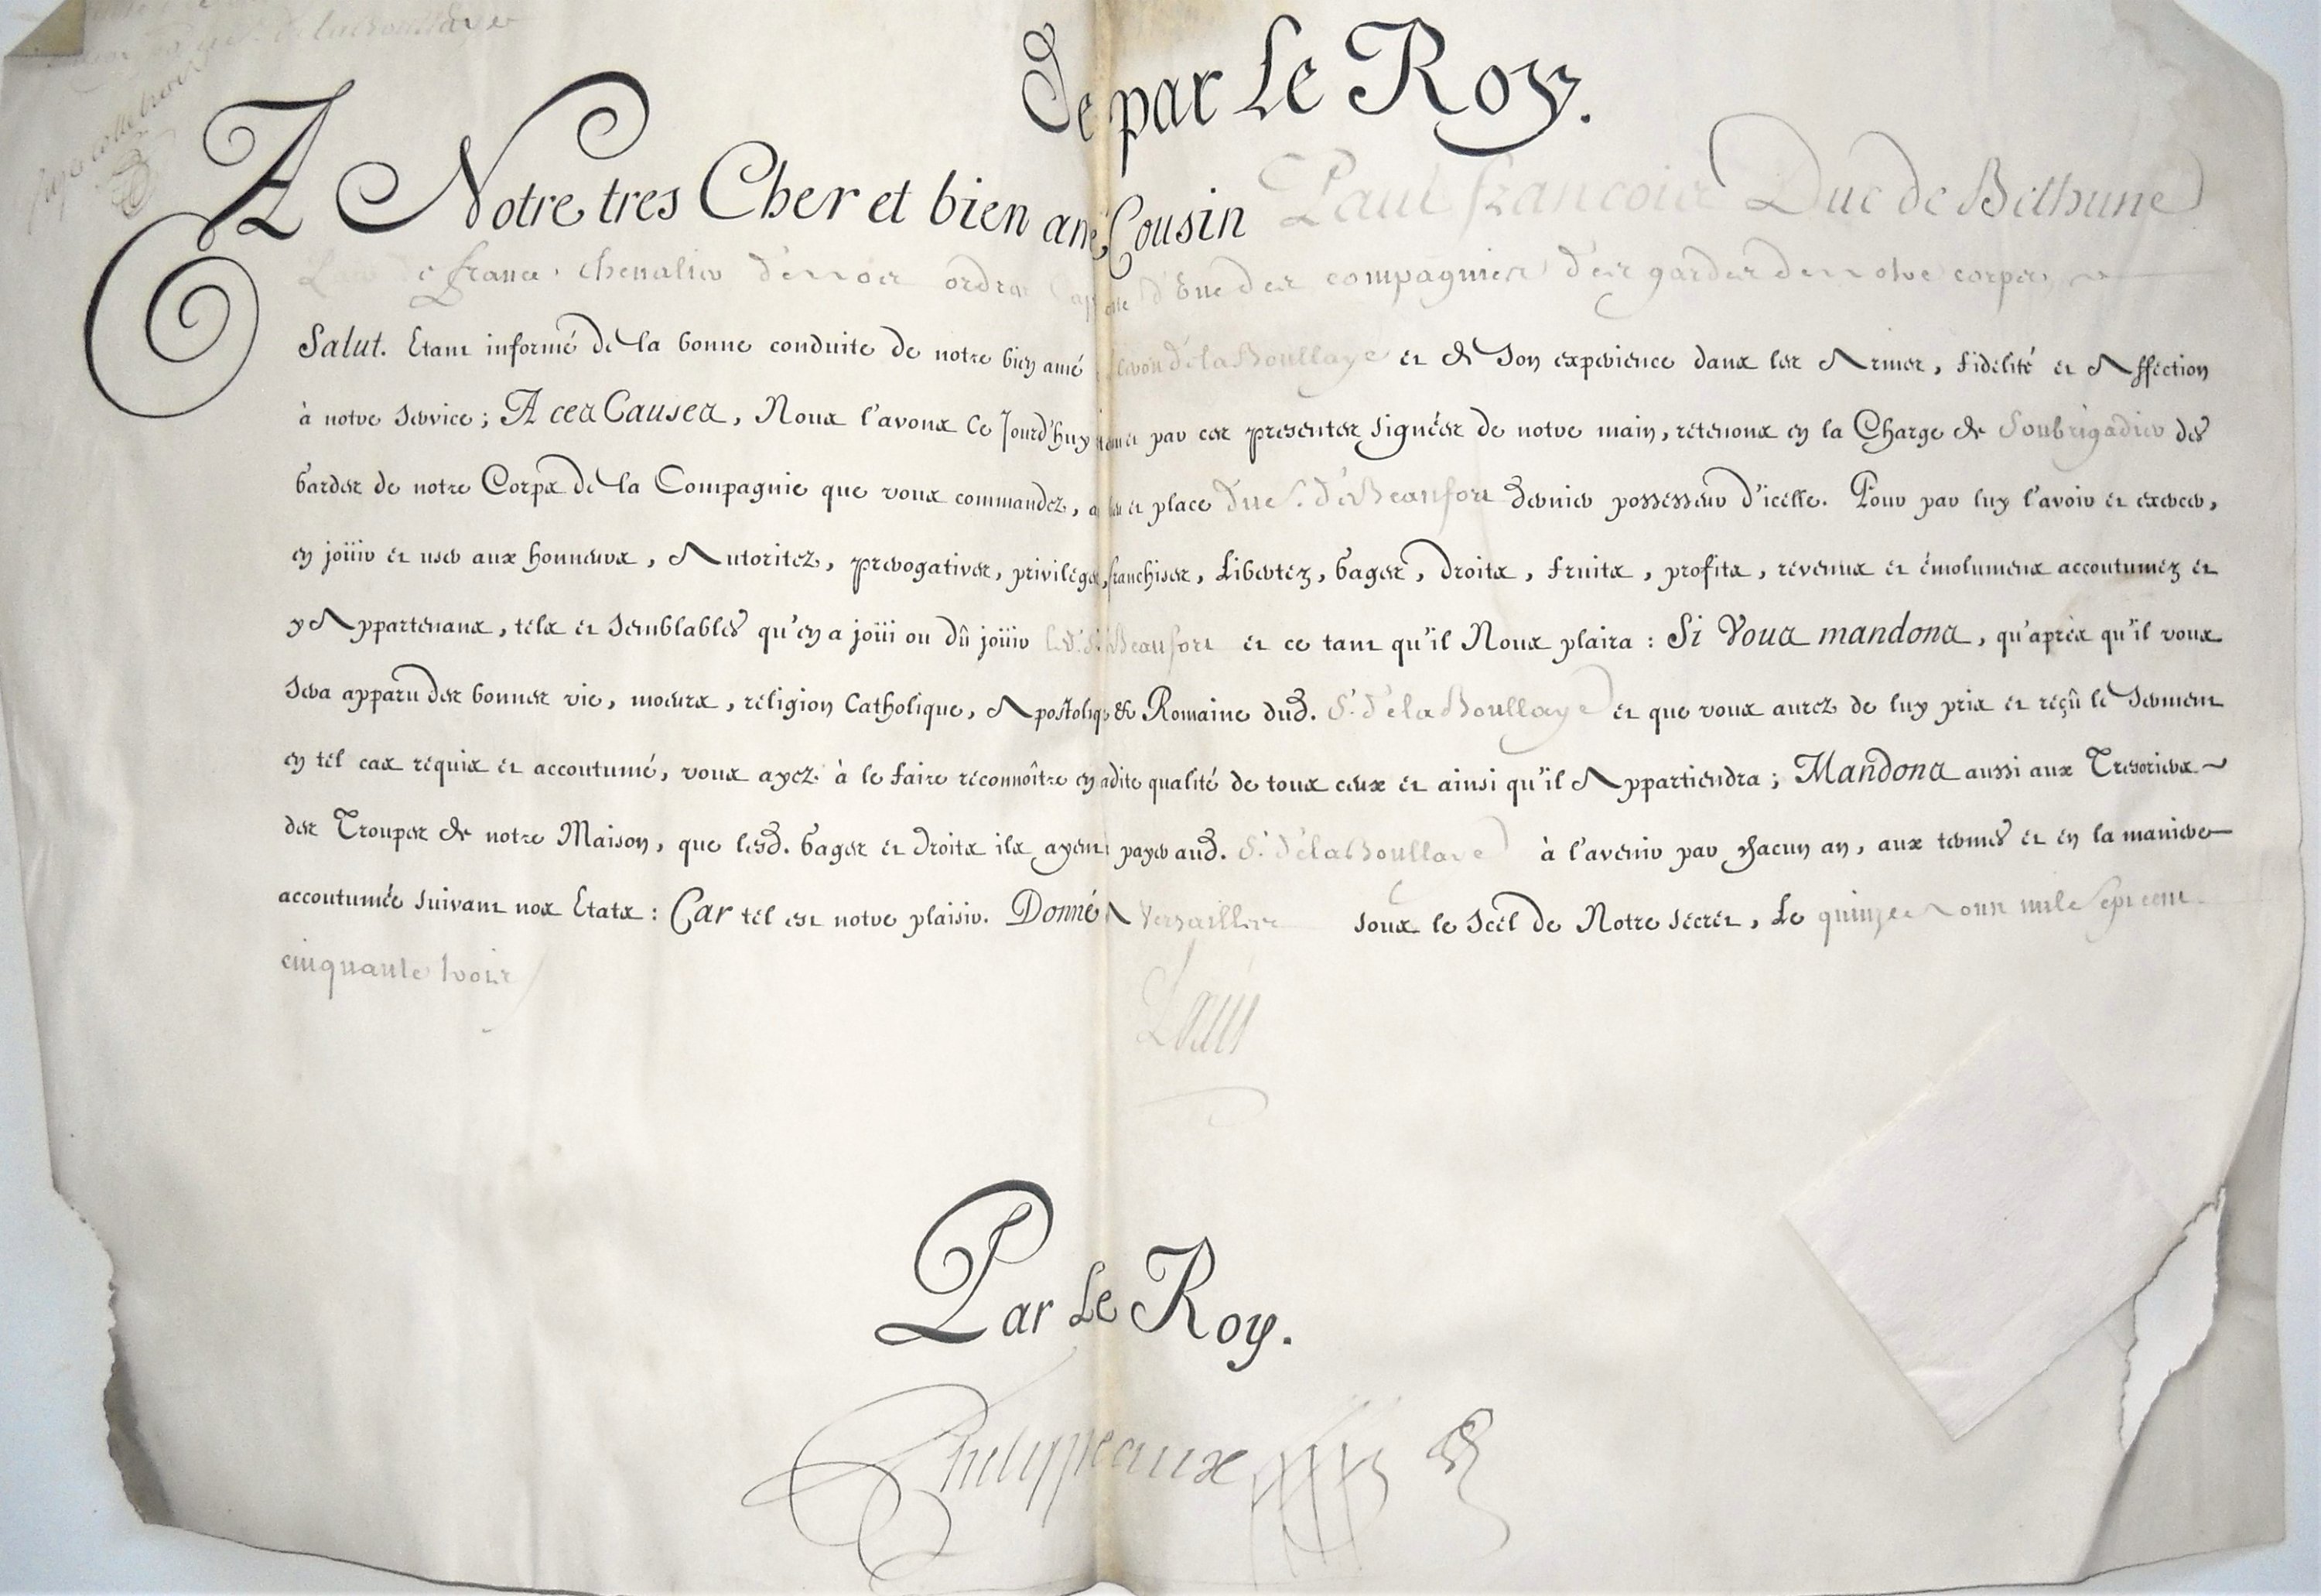 De par Le Roy.
A Notre tres Cher et bien amé Cousin Paul francois Duc de Bethune
de france, chevalier de nos ordres Cap.ne d'Une des compagnies des gardes de notre corps
Salut. Etant informé de la bonne conduite de notre bien amé de la Boullaye et de son experience dans les Armes, fidelité et Affection
à notre service; A ces Causes, Nous l'avons ce Jourd'huy retenu et par ces presentes signées de notre main, retenons en la Charge de Soubrigadier des
Gardes de notre Corps de la Compagnie que vous commandez, au lieu et place du S. de Beaufort dernier possesseur d'icelle. Pour par luy l'avoir et exercer,
en joüir et user aux honneurs, Autoritez, prerogatives, privileges, franchises, Libertez, Gages, droits, fruits, profits, revenus et émolumens accoutumez et
y Appartenans, tels et semblables qu'en a joüi ou dû joüir led. S. de Beaufort et ce tant qu'il Nous plaira: Si Vous mandons, qu'après qu'il vous
sera apparu des bonnes vie, moeurs, réligion Catholique, Apostolique & Romaine dud. S. de la Boullaye et que vous aurez de luy pris et reçû le serment
en tel cas requis et accoutumé, vous ayez à le faire réconnoître en ladite qualité de tous ceux et ainsi qu'il Appartiendra; Mandons aussi aux Tresoriers
des Troupes de notre Maison, que lesd. Gages et droits ils ayent à payer aud. S. de la Boullaye à l'avenir par chacun an, aux termes et en la maniere
accoutumée suivant nos Etats: Car tel est notre plaisir. Donné A Versailles sous le Scel de Notre sécret, Le quinze Aout mile sept cent
cinquante trois
Louis
Par Le Roy.
Phelypeaux